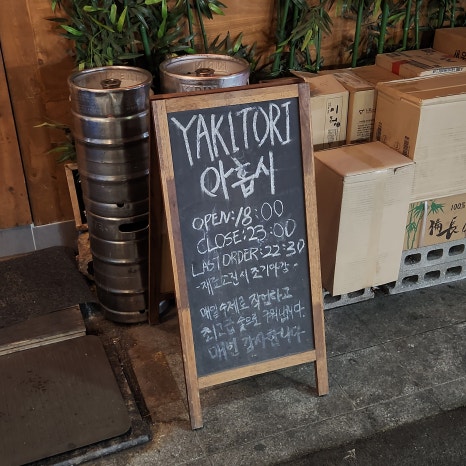 YAKITORI
아홉시
OPEN:18:00
CLOSE:23:00
LAST ORDER:22:30
-재료소진시 조기마감-
매일 수제로 작업하고
최고급 숯으로 구워냅니다.
매번 감사합니다-
100%